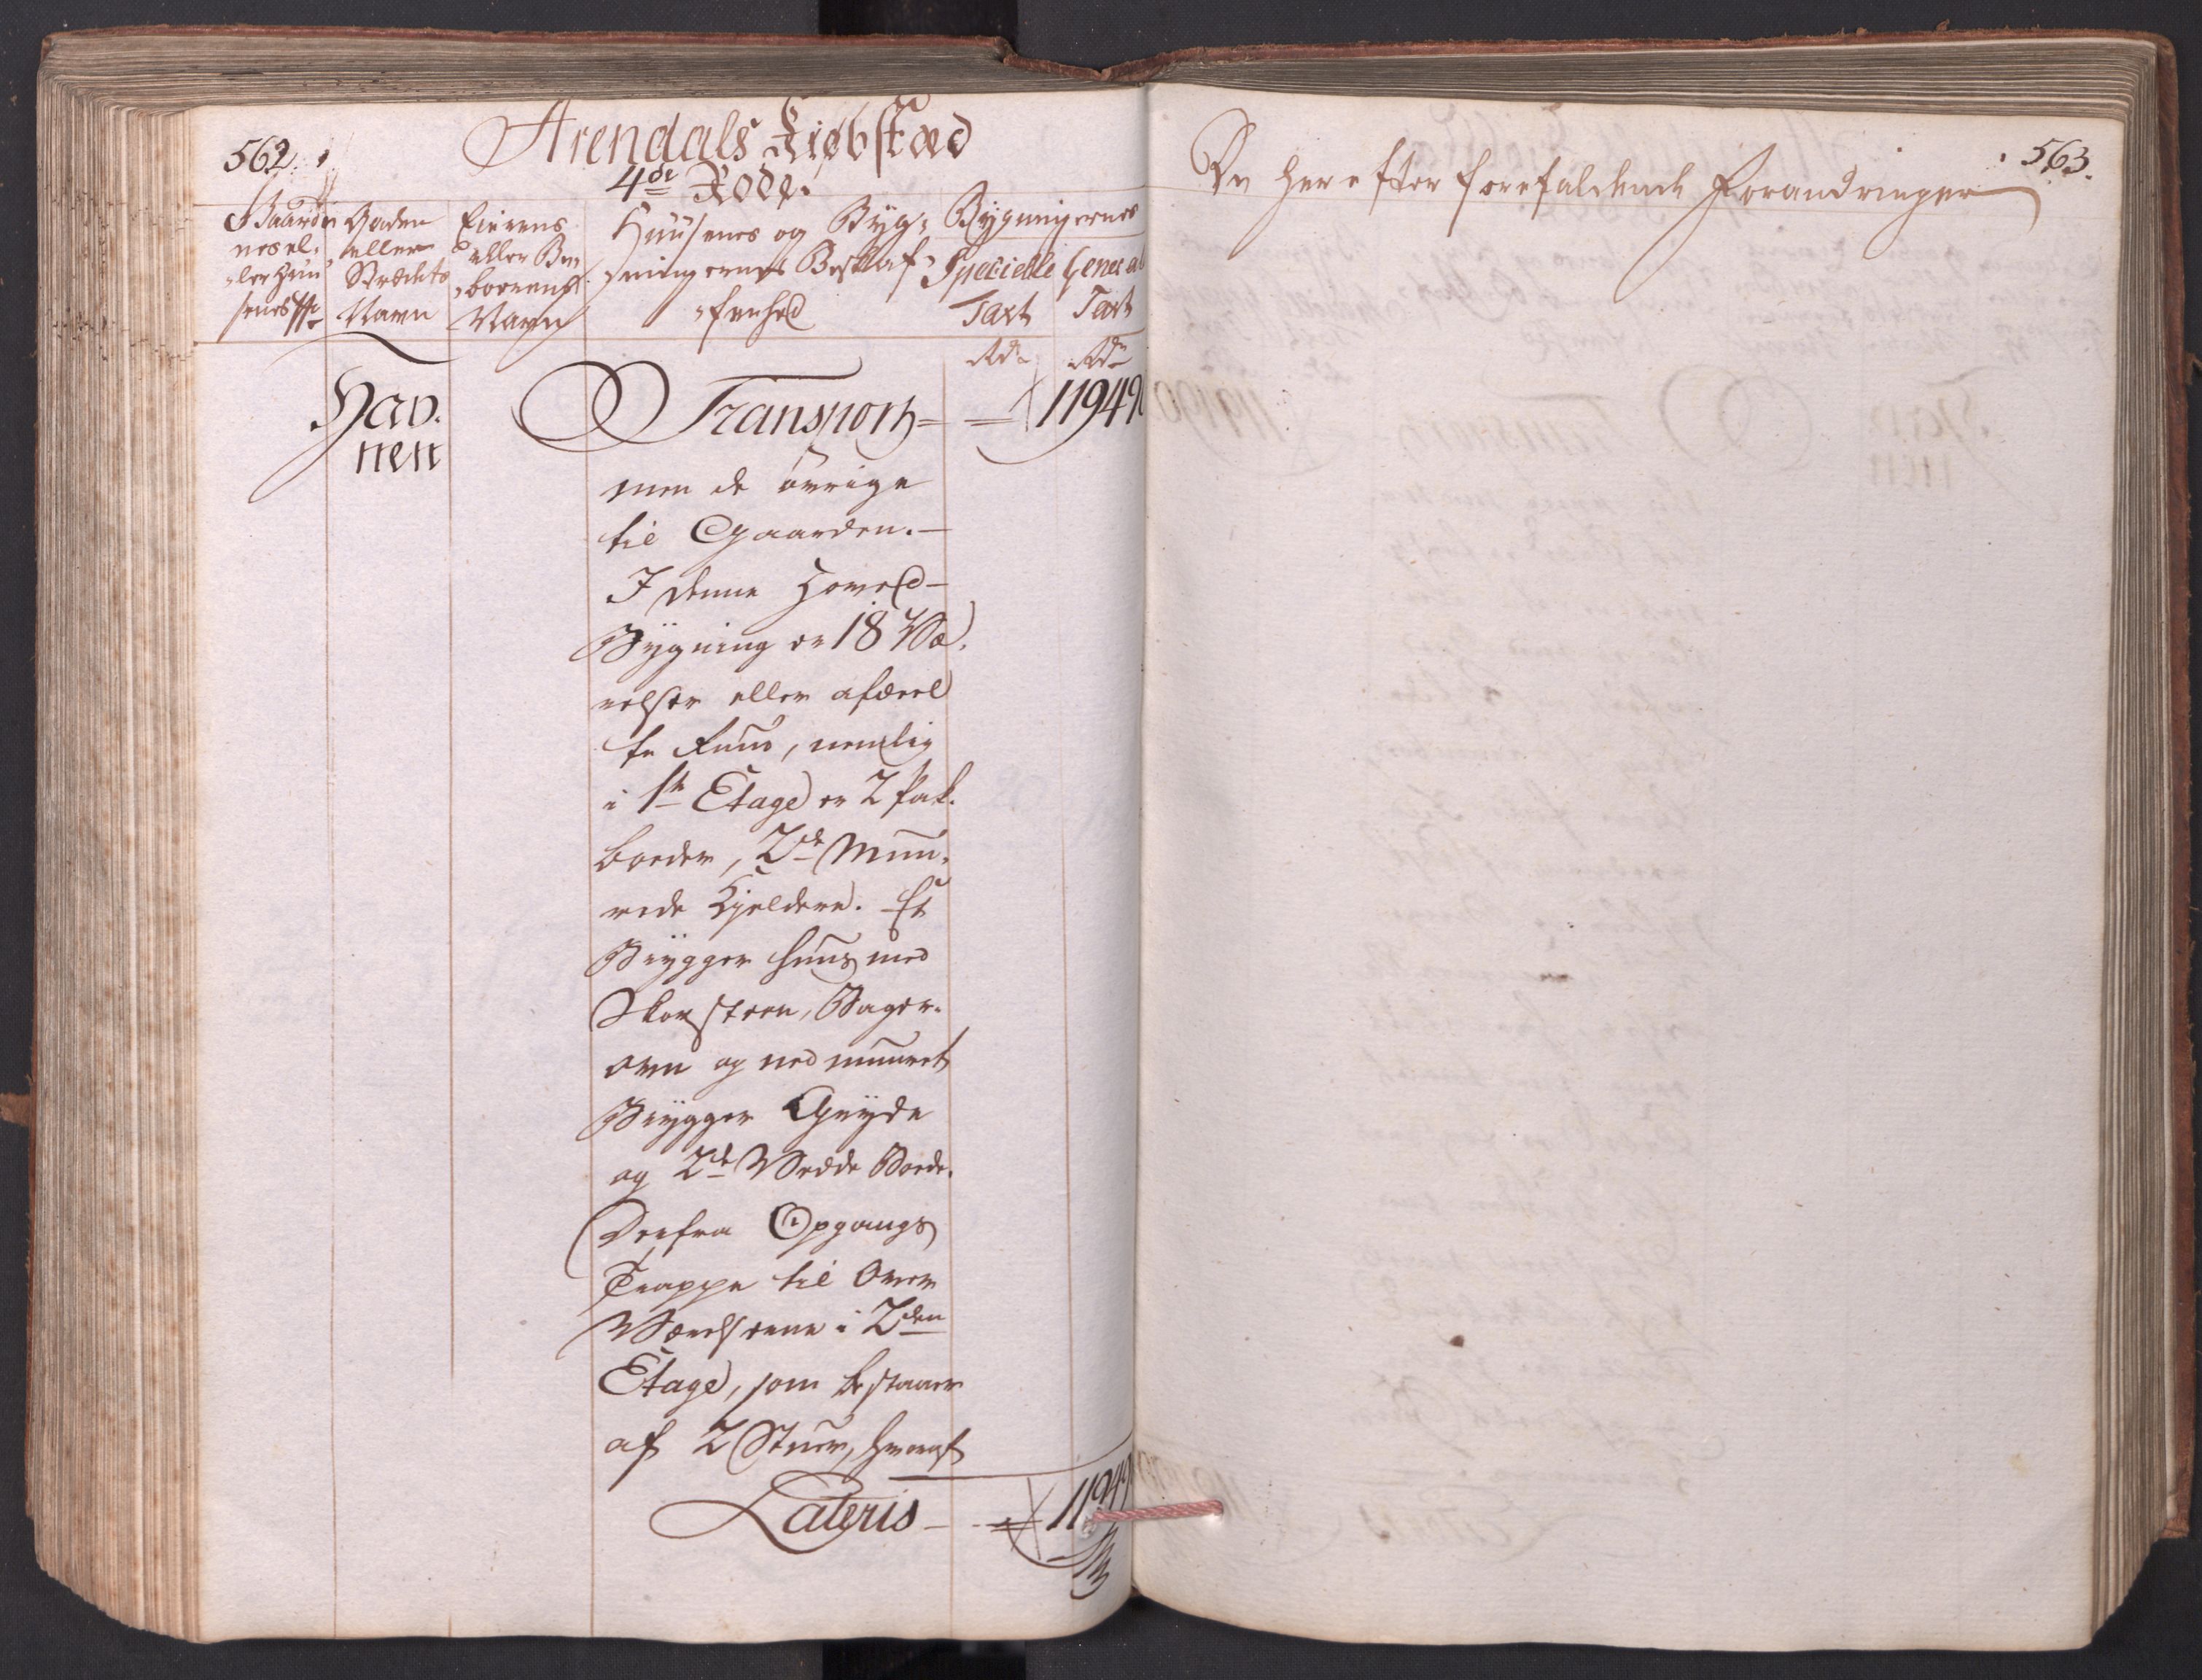 562.
Arendals Kiøbstæd
4de Rode.
Gaarde
nes el,
ler Huu
senes No
Gaden
eller
Strædets
Navn
Eierens
eller Be,
boerens
Navn
Huusenes og Byg,
ningernes Beskaf,
fenhed
Bygningernes
Specielle
Taxt
General
Taxt
Rdr
Rdr
Hav.
nen
Transport = = 11949
men de øvrige
til Gaarden. —
I denne Hoved-
Bygning er 18 Væ,
relser eller afdeel
te Ruum, nemlig
i 1te Etage er 2 Pak.
boeder, 2de Muu,
rede Kjeldere. Et
Brygger Huus med
Skorsteen, Bager.
ovn og ned muuret
Brygger Gryde
og 2de Vedde Boede.
Derfra Opgangs
Trappe til Over
Værelserne i 2den
Etage, som bestaaer
af 2 Stuer, hvoraf
Lateris — = 11949
563.
De herefter forefaldende Forandringer